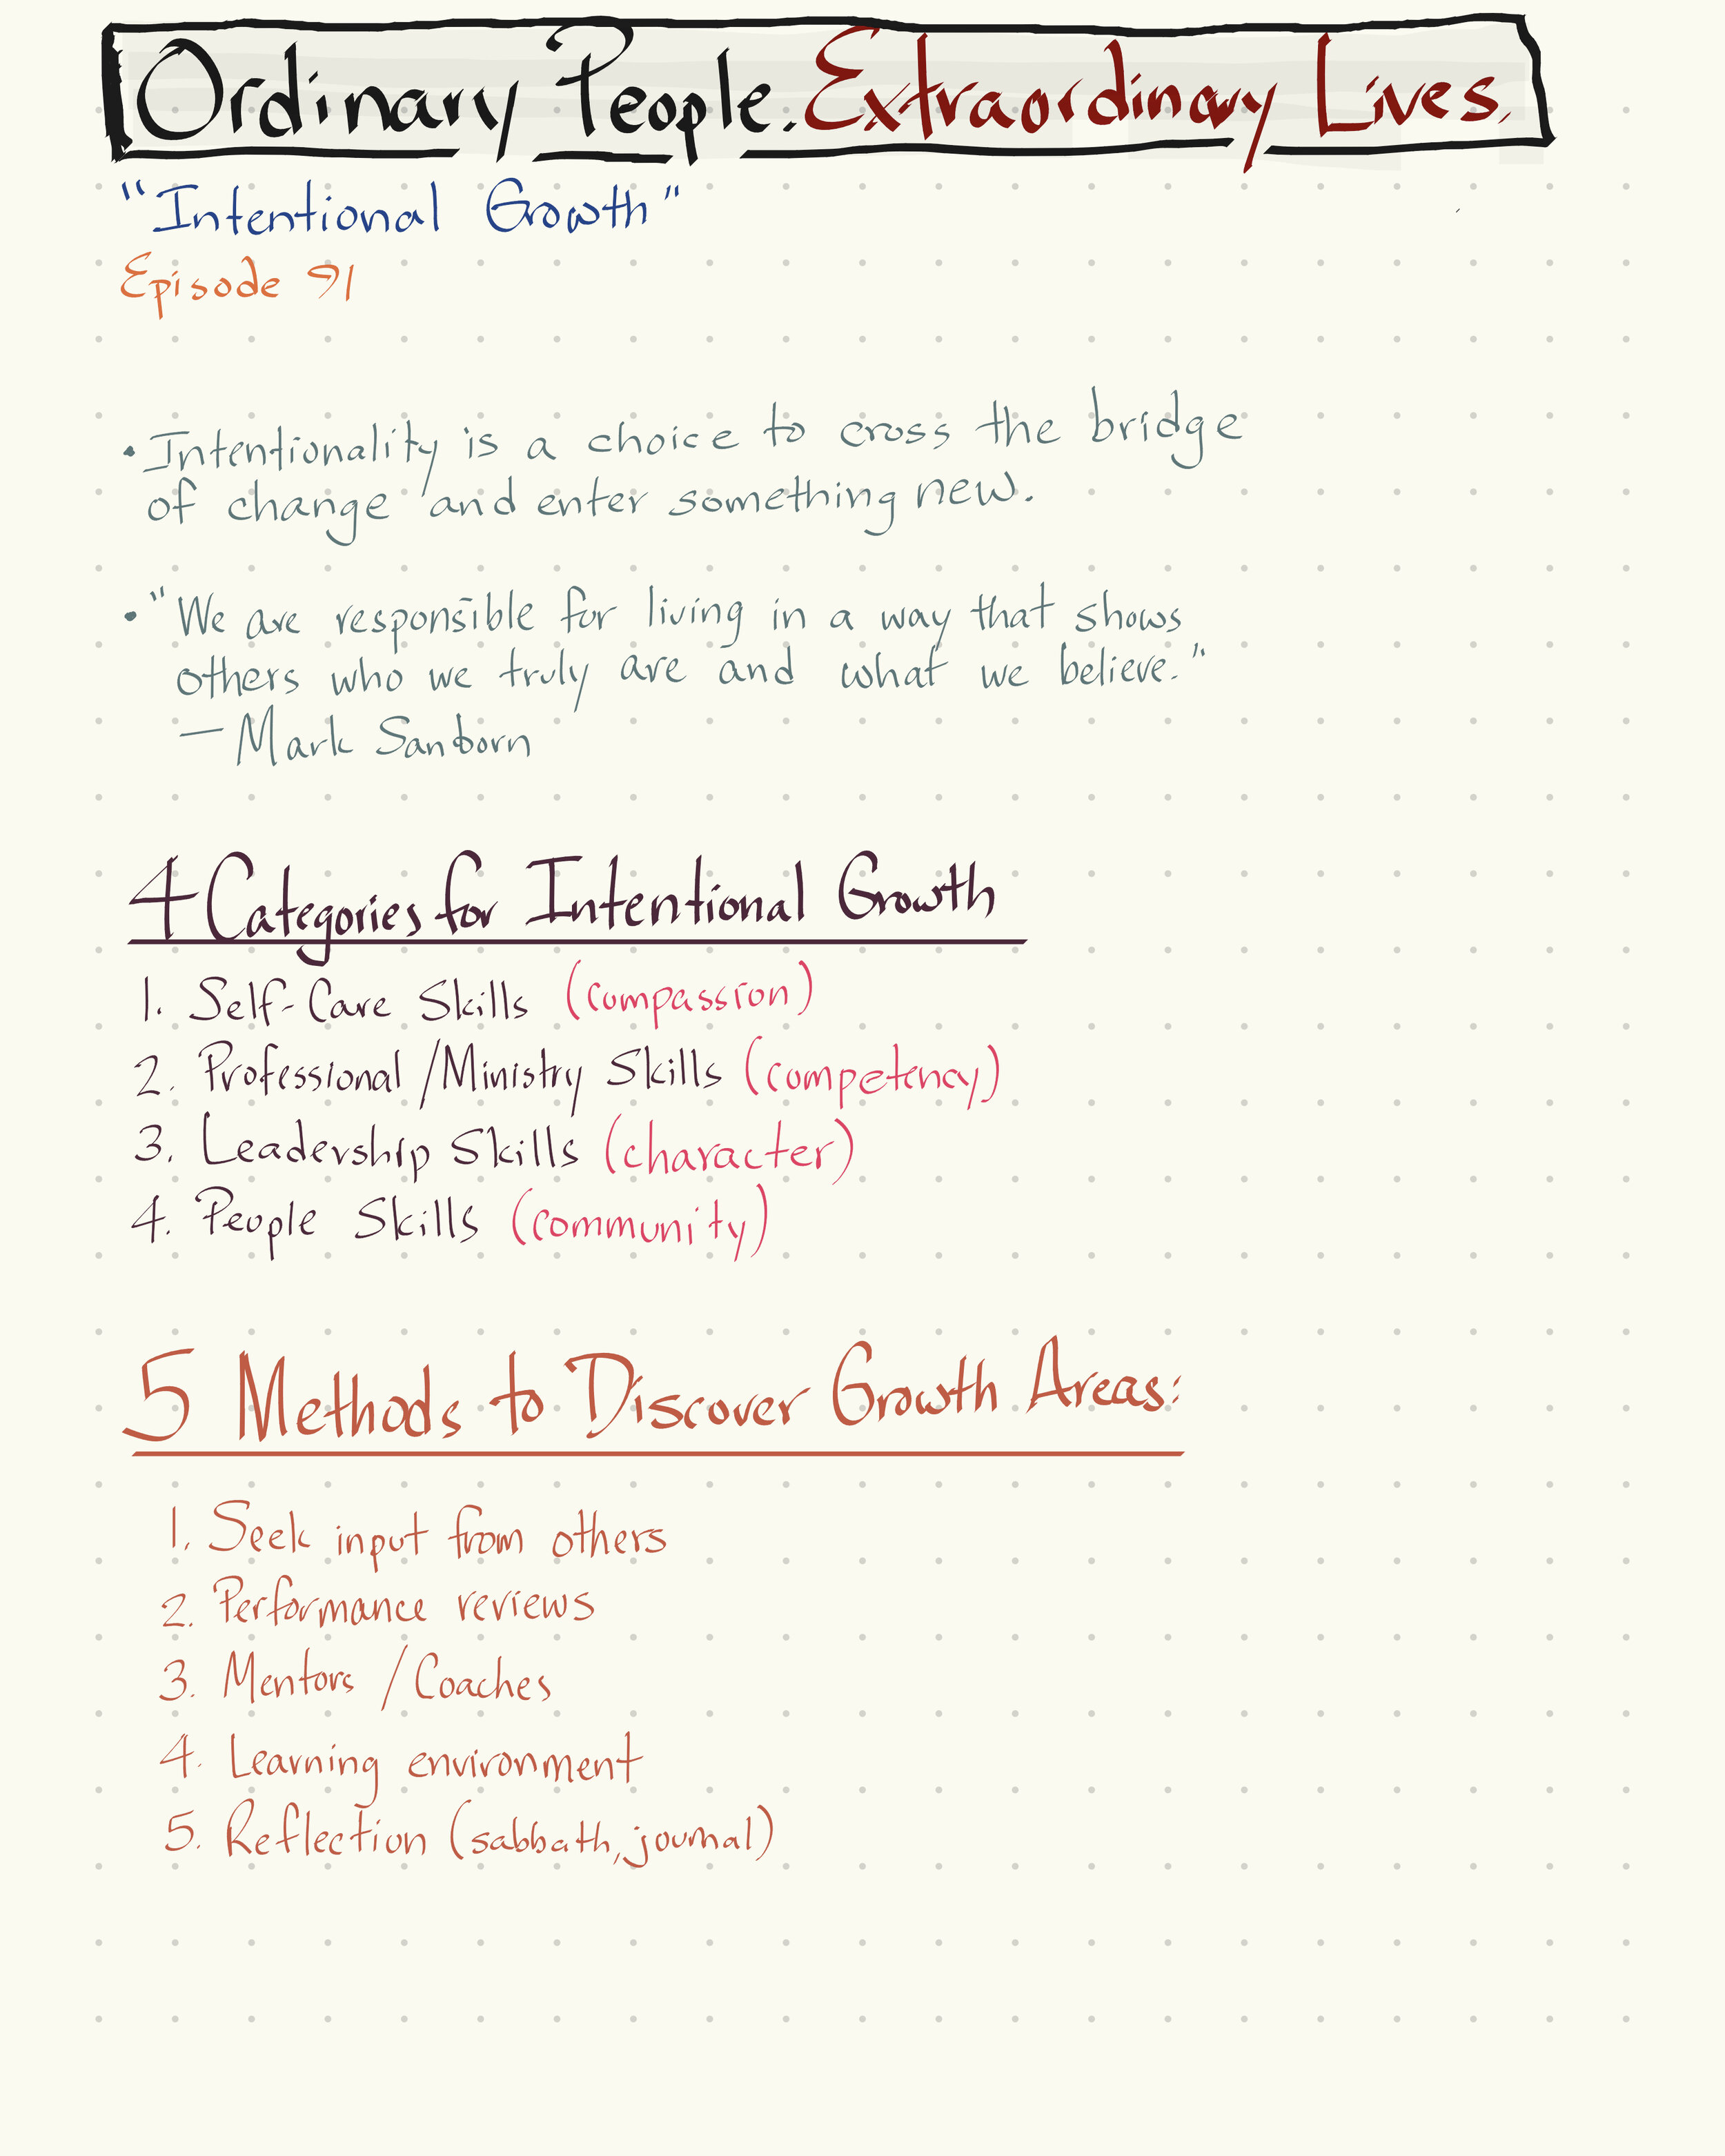 Ordinary People. Extraordinary Lives.
"Intentional Growth"
Episode 91
• Intentionality is a choice to cross the bridge
of change and enter something new.
• "We are responsible for living in a way that shows
others who we truly are and what we believe."
— Mark Sanborn
4 Categories for Intentional Growth
1. Self-Care Skills (compassion)
2. Professional/Ministry Skills (competency)
3. Leadership Skills (character)
4. People Skills (community)
5 Methods to Discover Growth Areas:
1. Seek input from others
2. Performance reviews
3. Mentors / Coaches
4. Learning environment
5. Reflection (sabbath, journal)